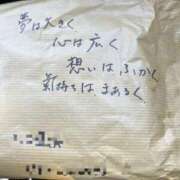 夢は大きく
心は広く
想いはふかく
気持ちはまあるく